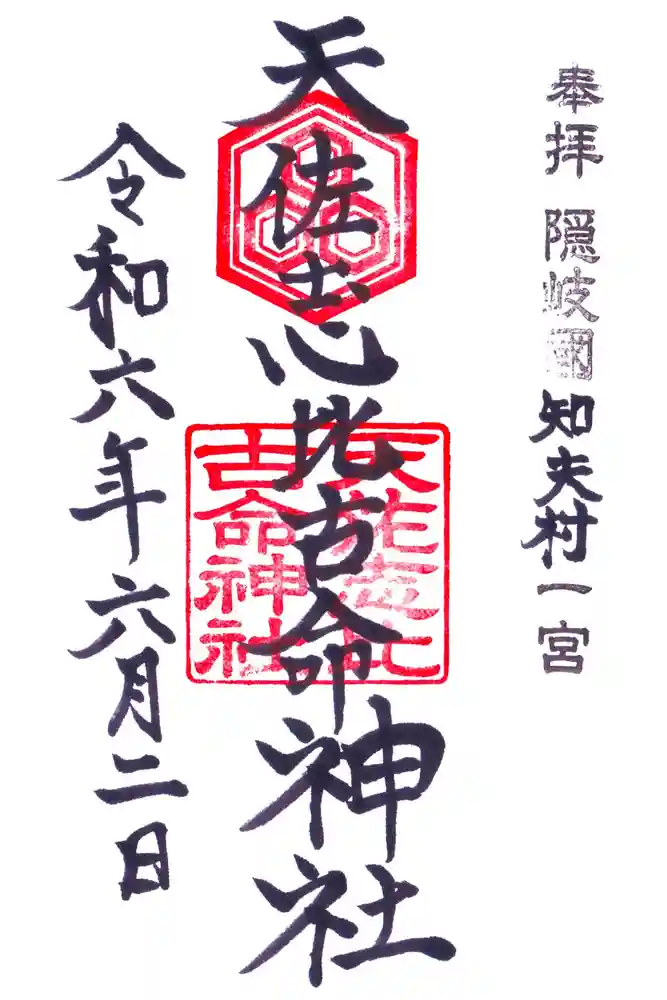 奉拝 隠岐國 知夫村 一宮
天佐志比古命神社
天佐志比
古命神社
令和六年六月二日